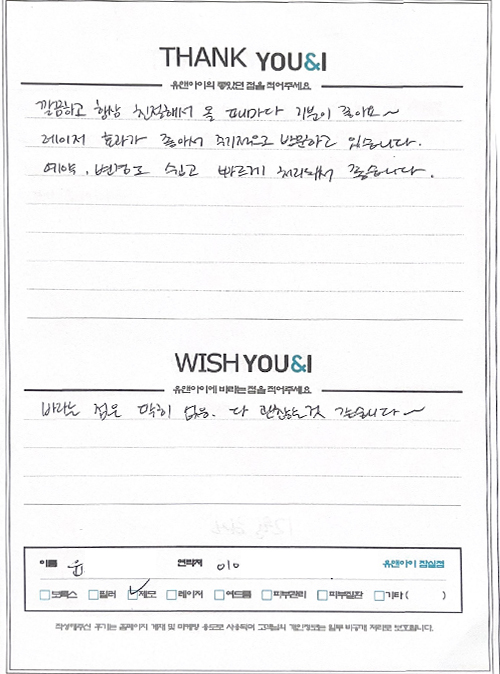 THANK YOU&I
유앤아이의 좋았던 점을 적어주세요
깔끔하고 항상 친절해서 올 때마다 기분이 좋아요~
레이저 효과가 좋아서 주기적으로 방문하고 있습니다.
예약, 변경도 쉽고 빠르게 처리되서 좋습니다.
WISH YOU&I
유앤아이에 바라는 점을 적어주세요
바라는 점은 딱히 없음. 다 괜찮은것 같습니다~
이름 윤 연락처 010 유앤아이 잠실점
보톡스 필러 제모 레이저 여드름 피부관리 피부질환 기타 ( )
작성해주신 후기는 홈페이지 게재 및 마케팅 용도로 사용되며 고객님의 개인정보는 일부 비공개 처리로 보호됩니다.